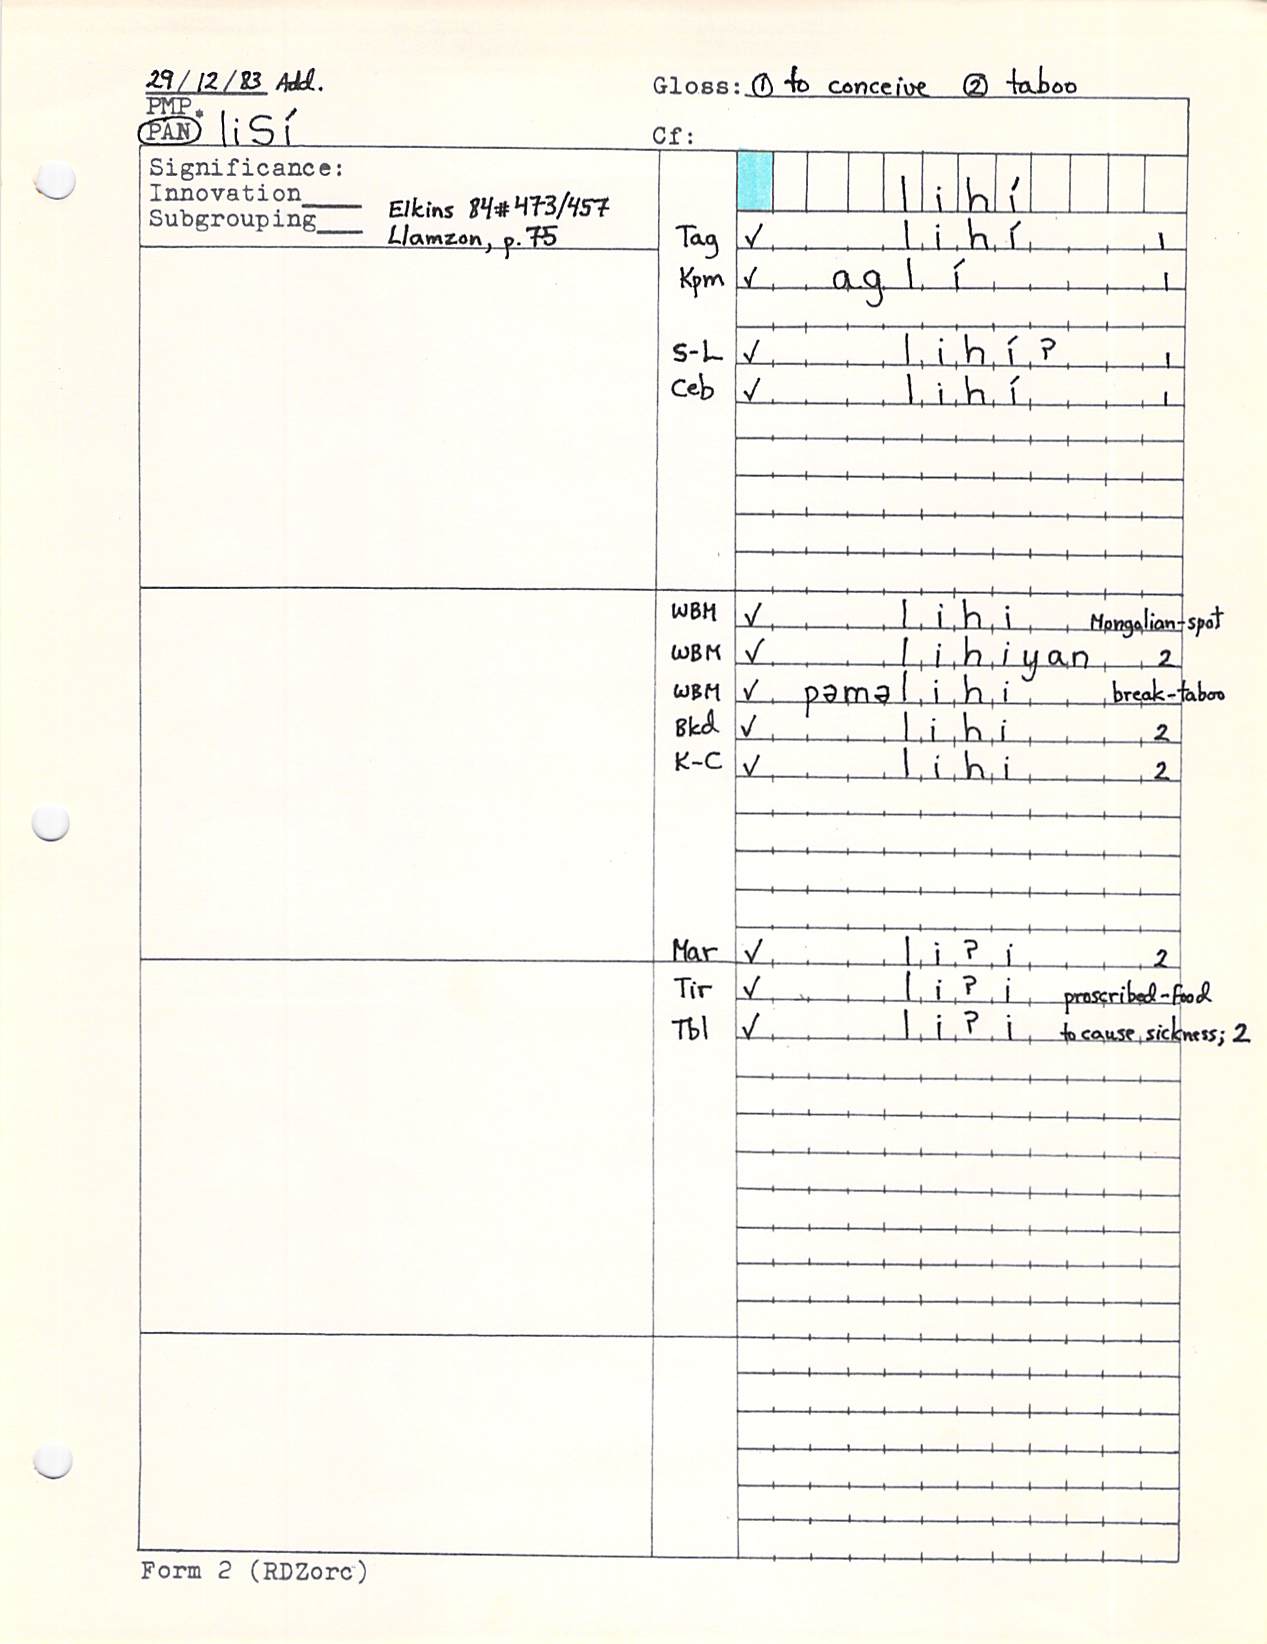 29/12/83 Add.
Gloss: ① to conceive ② taboo
PMP
PAN * liSí
Cf:
Significance:
Innovation____
Subgrouping____
Elkins 84#473/457
Llamzon, p.75
lihí
Tag ✓ lihí 1
Kpm ✓ aglí 1
S-L ✓ lihíʔ 1
Ceb ✓ lihí 1
WBM ✓ lihi Mongolian-spot
WBM ✓ lihiyan 2
WBM ✓ pəməlihi break-taboo
Bkd ✓ lihi 2
K-C ✓ lihi 2
Mar ✓ liʔi 2
Tir ✓ liʔi proscribed-food
Tbl ✓ liʔi to cause sickness; 2
Form 2 (RDZorc)